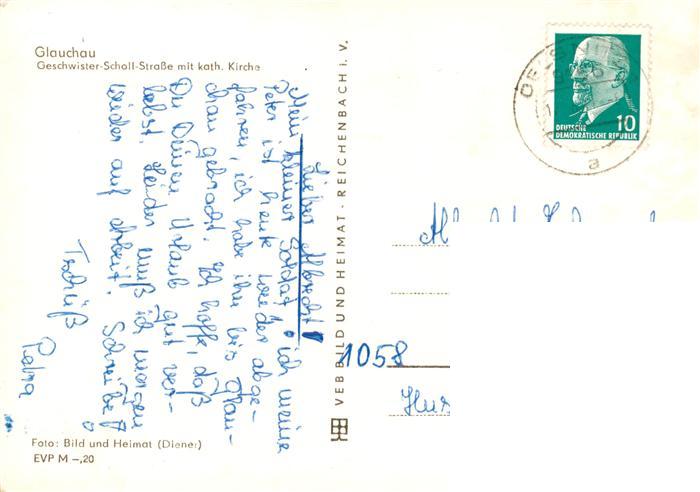 Glauchau
Geschwister-Scholl-Straße mit kath. Kirche
Lieber Albrecht!
Mein kleiner Soldat, ich meine
Peter ist heute wieder abge-
fahren, ich habe ihn bis Glau-
chau gebracht. Ich hoffe, daß
Du Deinen Urlaub gut ver-
lebst. Leider muß ich morgen
wieder auf Arbeit. Schreibe!
Tschüß
Petra
Foto: Bild und Heimat (Diener)
EVP M –,20
VEB BILD UND HEIMAT · REICHENBACH I. V.
10
DEUTSCHE
DEMOKRATISCHE REPUBLIK
a
1058